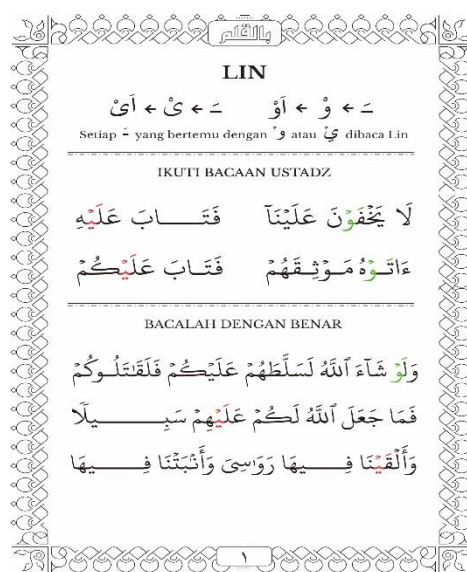 بالقلم
LIN
ـَ ← وْ ← اَوْ ـَ ← يْ ← اَيْ
Setiap ـَ yang bertemu dengan وْ atau يْ dibaca Lin
IKUTI BACAAN USTADZ
لَا يَخْفَوْنَ عَلَيْنَآ فَتَـــابَ عَلَيْهِ
ءَاتَـوْهُ مَـوْثِـقَهُمْ فَتَـابَ عَلَيْكُمْ
BACALAH DENGAN BENAR
وَلَوْ شَآءَ ٱللَّهُ لَسَلَّطَهُمْ عَلَيْكُمْ فَلَقَـٰتَلُـوكُمْ
فَمَا جَعَلَ ٱللَّهُ لَكُمْ عَلَيْهِمْ سَبِــــيلًا
وَأَلْقَيْنَا فِــــيهَا رَوَٰسِىَ وَأَنۢبَتْنَا فِــــيهَا
١